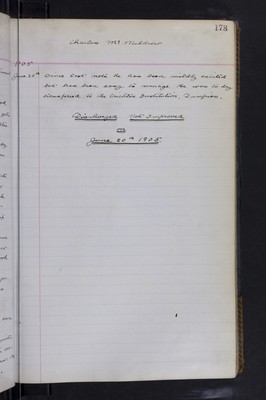 178
Charles McI Muldrow
1905
June 20th Since last note he has been mildly excited
but has been easy to manage. He was to day
transferred to the Crichton Institution, Dumfries.
Discharged Not Improved
June 20th 1905